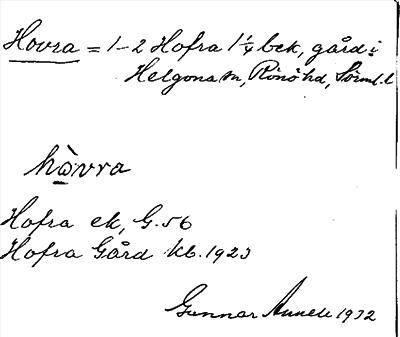 Hovra = 1-2 Hofra 1 1/4 bek, gård i
Helgona sn, Rönö hd, Sörml. l
hòvra
Hofra ek, G. 56
Hofra Gård kb. 1923
Gunnar 1932